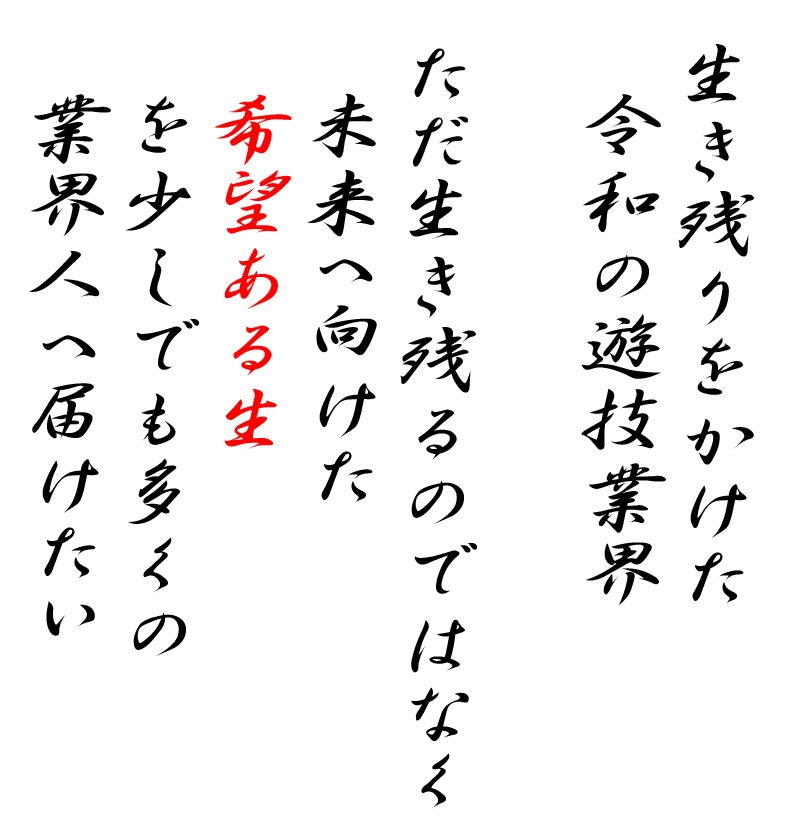 生き残りをかけた
令和の遊技業界
ただ生き残るのではなく
未来へ向けた
希望ある生
を少しでも多くの
業界人へ届けたい